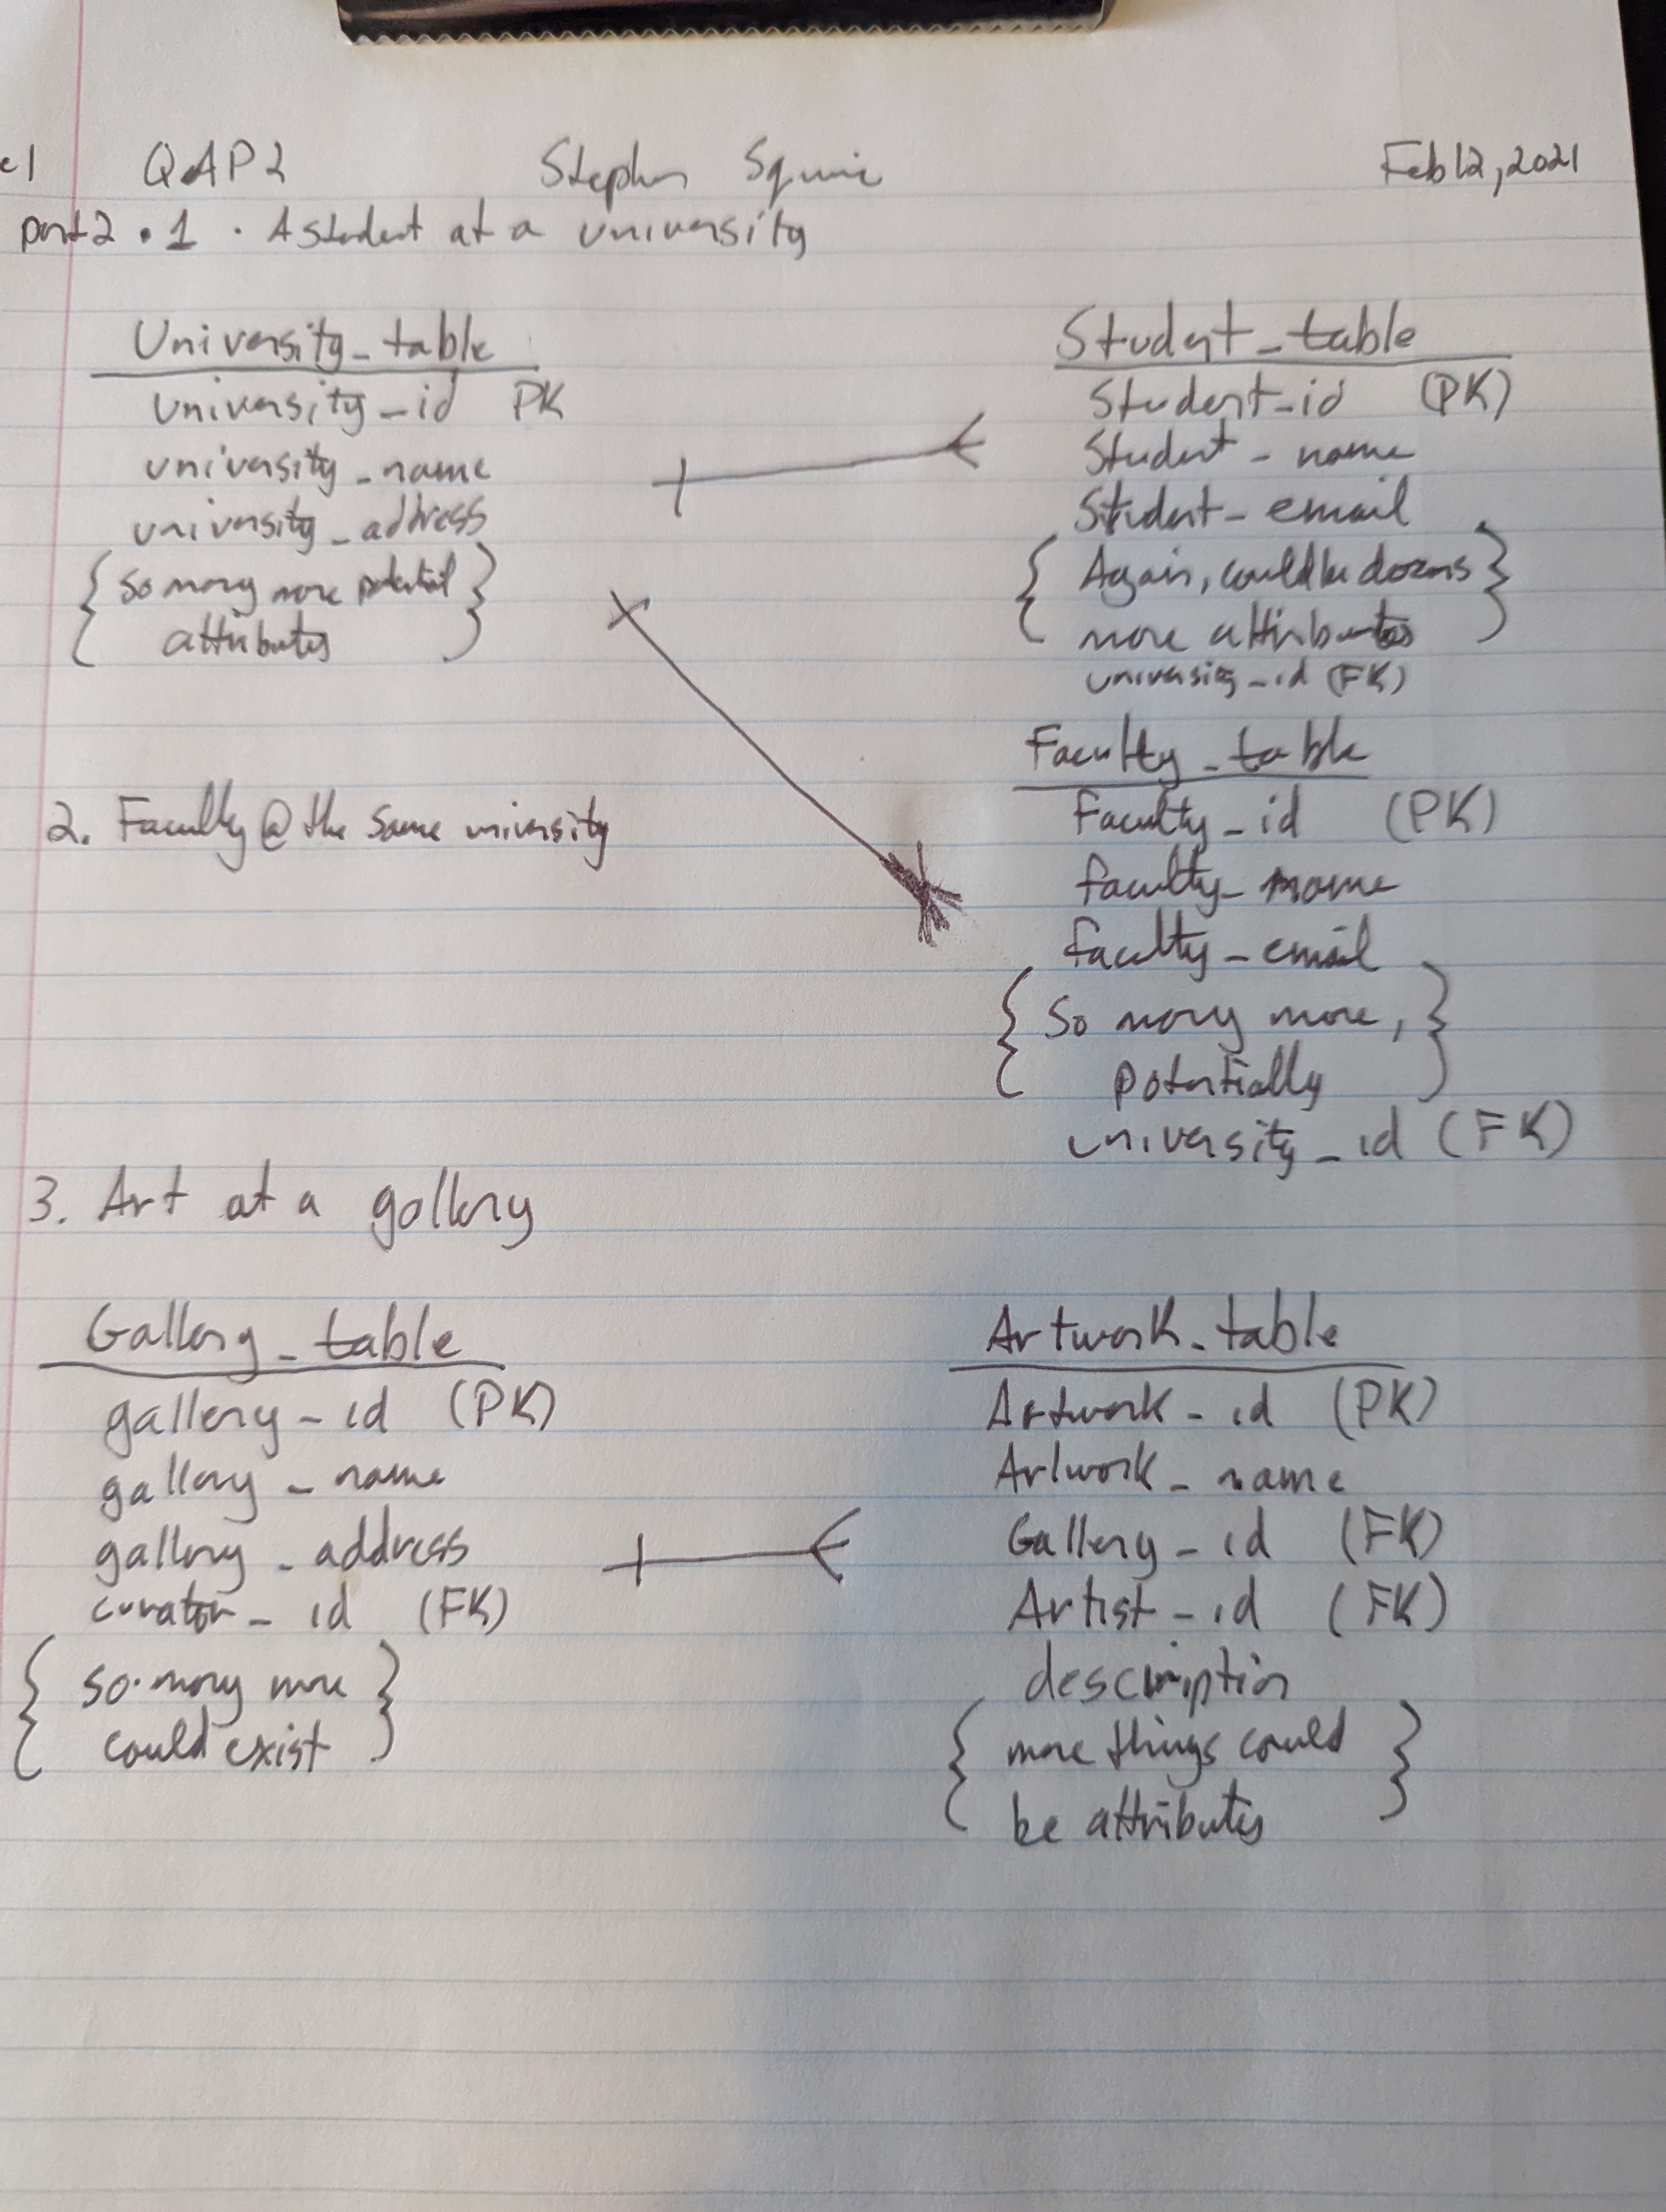 e1 QAP2 Stephen Squire Feb 12, 2021
part 2 • 1 . A student at a university
University_table
university_id PK
university_name
university_address
{ So many more potential
attributes }
Student_table
Student_id (PK)
Student_name
Student_email
{ Again, could be dozens
more attributes }
university_id (FK)
2. Faculty @ the same university
Faculty_table
Faculty_id (PK)
faculty_name
faculty_email
{ So many more,
potentially }
university_id (FK)
3. Art at a gallery
Gallery_table
gallery_id (PK)
gallery_name
gallery_address
curator_id (FK)
{ so many more
could exist }
Artwork_table
Artwork_id (PK)
Artwork_name
Gallery_id (FK)
Artist_id (FK)
description
{ more things could
be attributes }